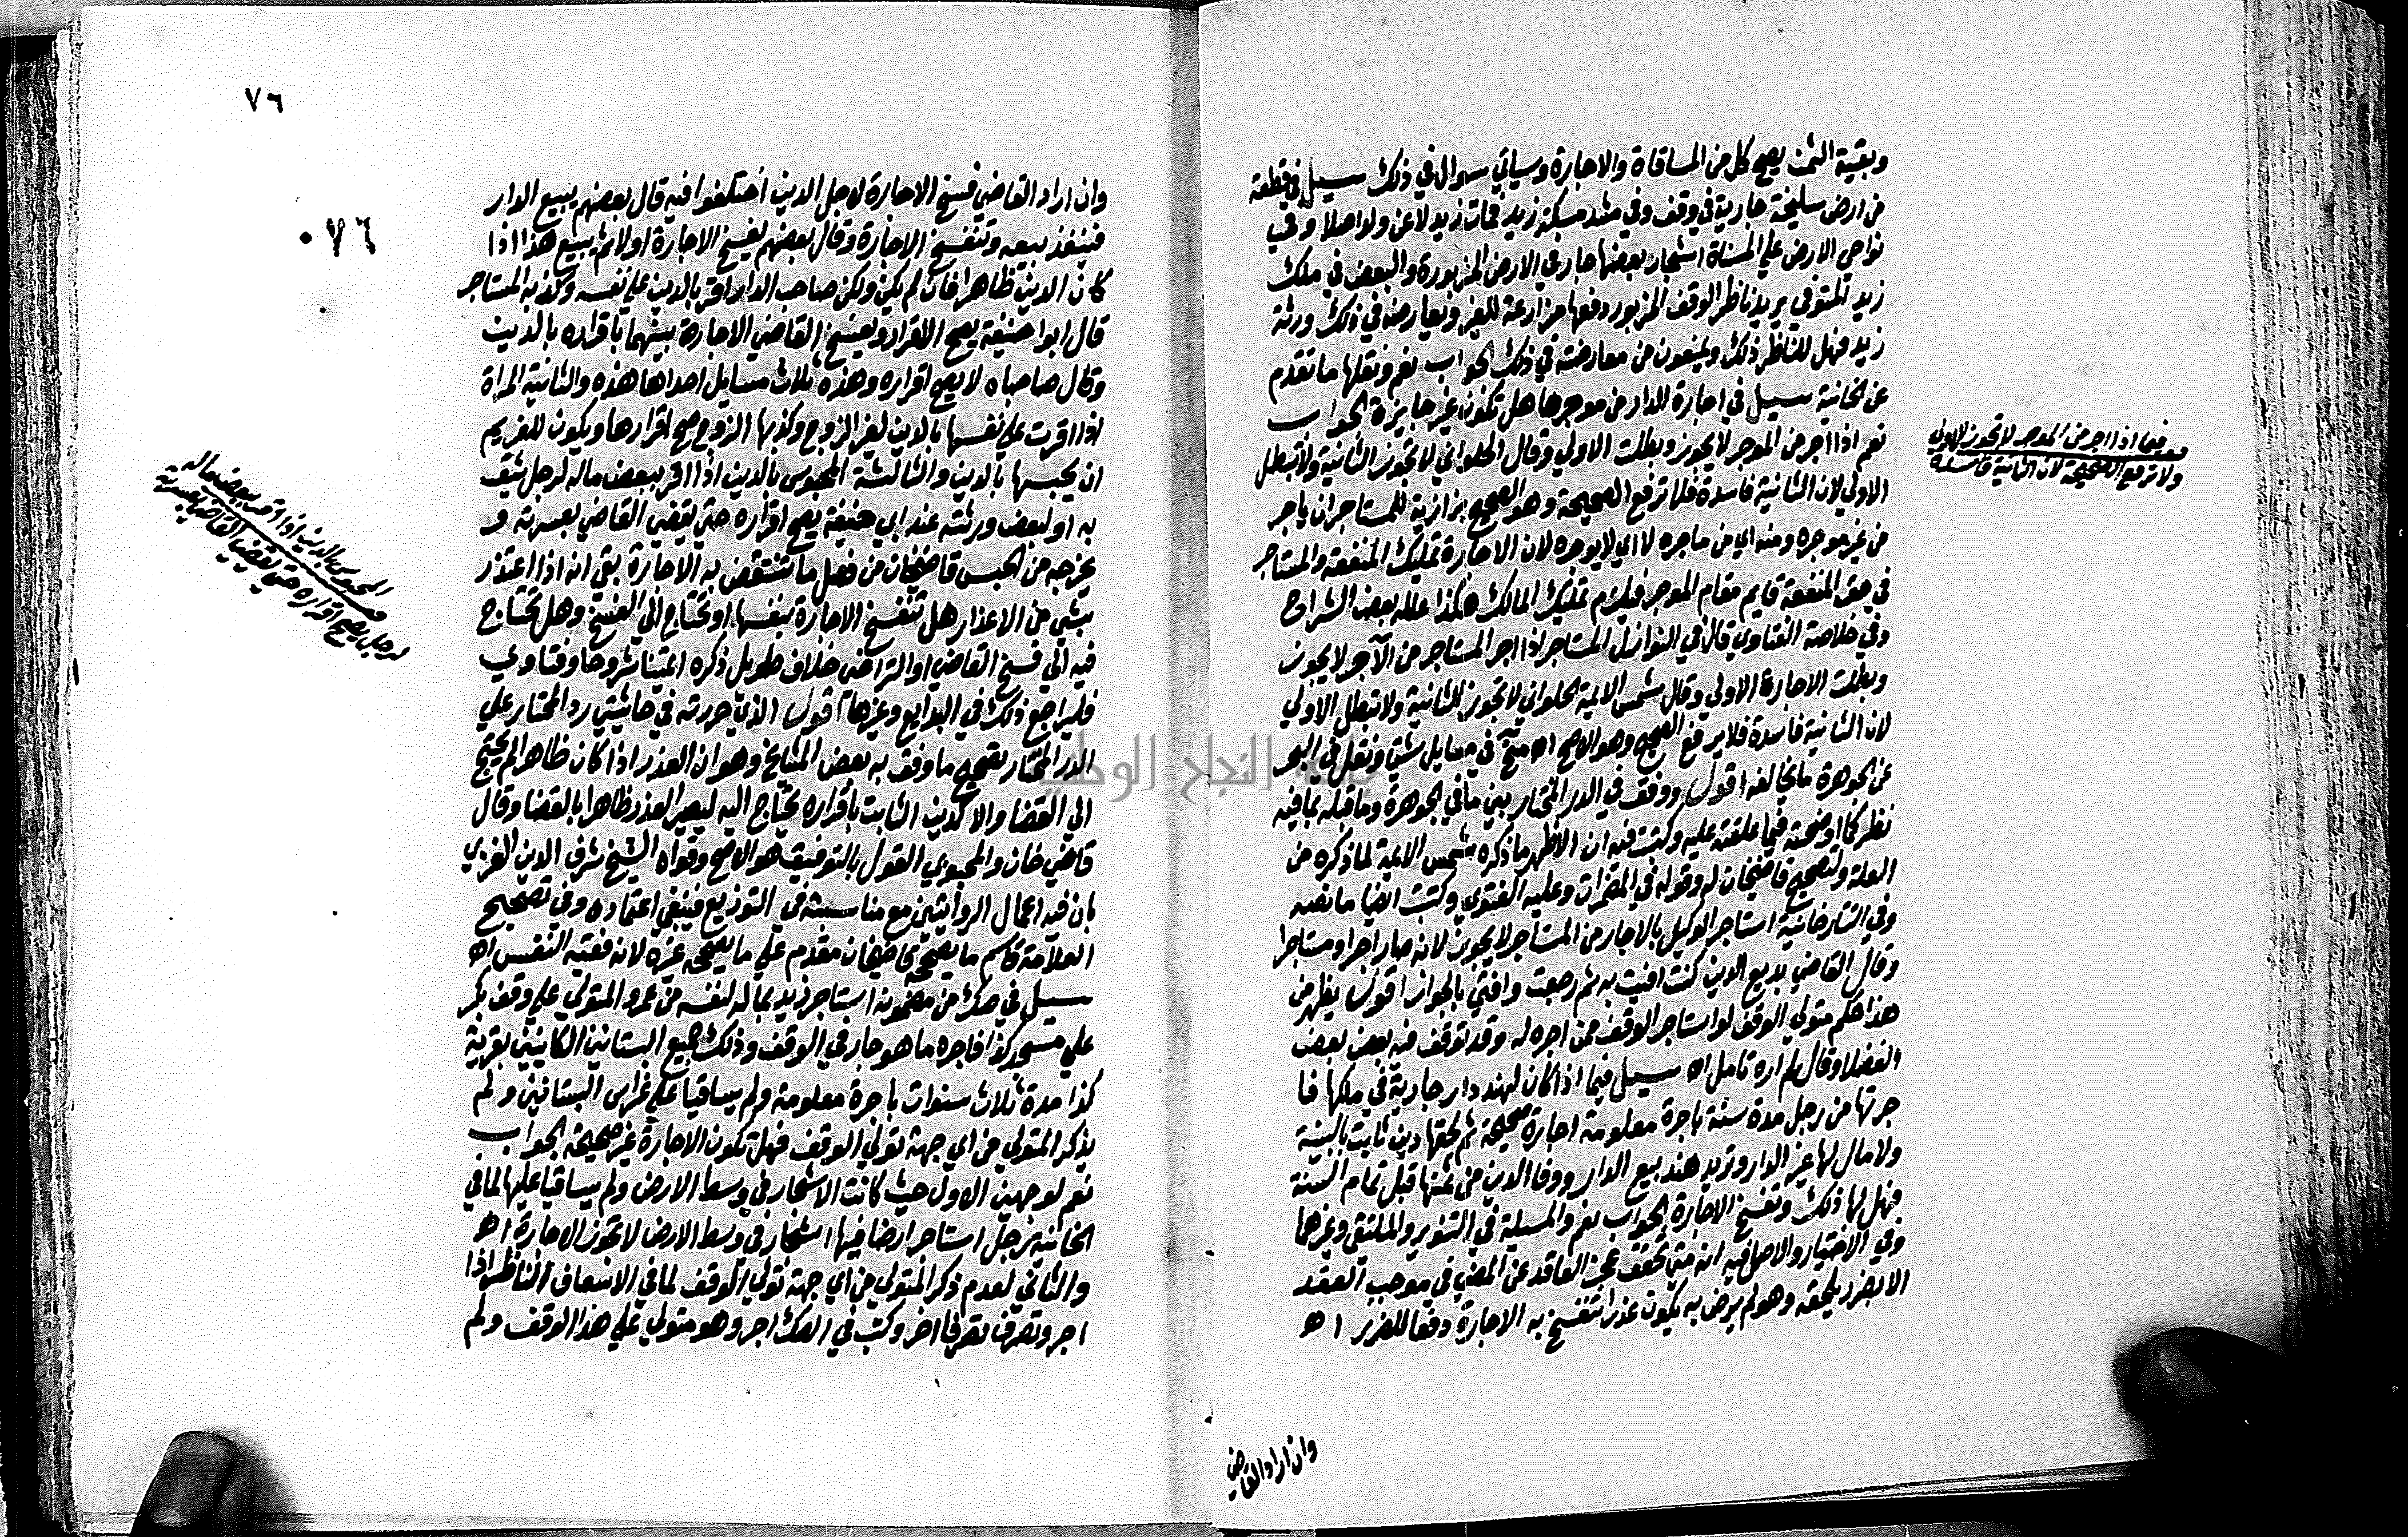 وبقية الثمن يصح كل من المساقاة والاجارة وسياتي سوال في ذلك سيل في قطعة
من ارض سليخة جارية في وقف وفي مشد مسكة زيد فمات زيد لا عن ولد اصلا وفي
نواحي الارض علي المسناة اشجار بعضها جار في الارض المزبورة والبعض في ملك
زيد المتوفي يريد ناظر الوقف المزبور دفعها مزارعة للغير ويعارضه في ذلك ورثة
زيد فهل للناظر ذلك ويمنعون من معارضته في ذلك الجواب نعم ونقلها ما تقدم
عن الخانية سيل في اجارة الدار من موجرها هل تكون غير جايزة الجواب
نعم اذا اجر من الموجر لا يجوز وبطلت الاولي وقال الحلواني لا تجوز الثانية ولا تبطل
الاولي لان الثانية فاسدة فلا ترفع الصحيحة وهو الصحيح بزازية للمستاجر ان ياجر
من غير موجره ومنه اي من ماجره لا اي لا يوجره لان الاجارة تمليك المنفعة والمستاجر
في حق المنفعة قايم مقام الموجر فيلزم تمليك المالك هكذا علله بعض الشراح
وفي خلاصة الفتاوي قال في النوازل المستاجر اذا اجر المستاجر من الآجر لا يجوز
وبطلت الاجارة الاولي وقال شمس الايمة الحلواني لا تجوز الثانية ولا تبطل الاولي
لان الثانية فاسدة فلا يرفع الصحيح وهو الاصح اه منح في مسايل شتي ونقل في البحر
عن الجوهرة ما يخالفه اقول ووفق في الدر المختار بين ما في الجوهرة وما قبله بما فيه
نظر كما اوضحته فيما علقته عليه وكتبت فيه ان الاظهر ما ذكره شمس الائمة لما ذكره من
العلة ولتصحيح قاضيخان له وقوله في المضمرات وعليه الفتوي وكتبت ايضا ما نصه
وفي التتارخانية استاجر الوكيل بالاجار من المستاجر لا يجوز لانه صار اجرا ومستاجرا
وقال القاضي بديع الدين كنت افتي به ثم رجعت وافتي بالجواز اقول يظهر من
هذا حكم متولي الوقف لو استاجر الوقف ممن اجره له وقد توقف فيه بعض بعض
الفضلا وقال لم اره تامل اه سيل فيما اذا كان لهند دار جارية في ملكها فا
جرتها من رجل مدة سنة باجرة معلومة اجارة صحيحة ثم لحقها دين ثابت بالبينة
ولا مال لها غير الدار وتريد هند بيع الدار ووفا الدين من ثمنها قبل تمام السنة
فهل لها ذلك وتفسخ الاجارة الجواب نعم والمسيلة في التنوير والملتقي وغيرهما
وفي الاختيار والاصل فيه انه متي تحقق عجز العاقد عن المضي في موجب العقد
الا بضرر يلحقه وهو لم يرض به يكون عذرا تنفسخ به الاجارة دفعا للضرر اه
وان اراد القاضي
فيما اذا اجر من الموجر لا تجوز الاولي
ولا ترفع الصحيحة لان الثانية فاسدة
٧٦
٠٧٦
وان اراد القاضي فسخ الاجارة لاجل الدين اختلفوا فيه قال بعضهم يبيع الدار
فينفذ بيعه وتنفسخ الاجارة وقال بعضهم يفسخ الاجارة اولا ثم يبيع هذا اذا
كان الدين ظاهرا فان لم يكن ولكن صاحب الدار اقر بالدين علي نفسه وكذبه المستاجر
قال ابوا حنيفة يصح الاقرار ويفسخ القاضي الاجارة بينهما باقراره بالدين
وقال صاحباه لا يصح اقراره وهذه ثلاث مسايل احداها هذه والثانية المراة
اذا اقرت علي نفسها بالدين لغير الزوج وكذبها الزوج صح اقرارها ويكون للغريم
ان يحبسها بالدين والثالثة المحبوس بالدين اذا اقر ببعض ماله لرجل يثق
به او لبعض ورثته عند ابي حنيفة يصح اقراره حتي يقضي القاضي بعسرته و
يخرجه من الحبس قاضيخان من فصل ما تنتقض به الاجارة بقي انه اذا اعتذر
بشي من الاعذار هل تنفسخ الاجارة بنفسها او تحتاج الي الفسخ وهل تحتاج
فيه الي فسخ القاضي او التراضي خلاف طويل ذكره ايمتنا شروحا وفتاوي
فليراجع ذلك في البدايع وغيرها اقول الذي حررته في حاشيتي رد المحتار علي
الدر المختار تصحيح ما وفق به بعض المشايخ وهو ان العذر اذا كان ظاهرا لم يحتج
الي القضا والا كالدين الثابت باقراره يحتاج اليه ليصير العذر ظاهرا بالقضا وقال
قاضي خان والمحبوبي القول بالتوفيق هو الاصح وقواه الشيخ شرف الدين الغزي
بان فيه اعمال الروايتين مع مناسبته في التوزيع فينبغي اعتماده وفي تصحيح
العلامة قاسم ما يصححه قاضيخان مقدم علي ما يصححه غيره لانه فقيه النفس اه
سيل في صك من مضمونه استاجر زيد بماله لنفسه من عمرو المتولي علي وقف بكر
علي مسجد كذا فاجره ما هو جار في الوقف وذلك جميع البستانين الكاينين بقرية
كذا مدة ثلاث سنوات باجرة معلومة ولم يساقيا علي غراس البستانين ولم
يذكر المتولي من اي جهة تولي الوقف فهل تكون الاجارة غير صحيحة الجواب
نعم لوجهين الاول حيث كانت الاشجار في وسط الارض ولم يساقيا عليها لما في
الخانية رجل استاجر ارضا فيها اشجار في وسط الارض لا تجوز الاجارة اه
والثاني لعدم ذكر المتولي من اي جهة تولي الوقف لما في الاسعاف الناظر اذا
اجر وتصرف تصرفا اخر وكتب في الصك اجر وهو متولي علي هذا الوقف ولم
المحبوس بالدين اذا اقر ببعض ماله
لرجل يصح اقراره حتي يقضي القاضي بعسرته
النجاح الوطنية